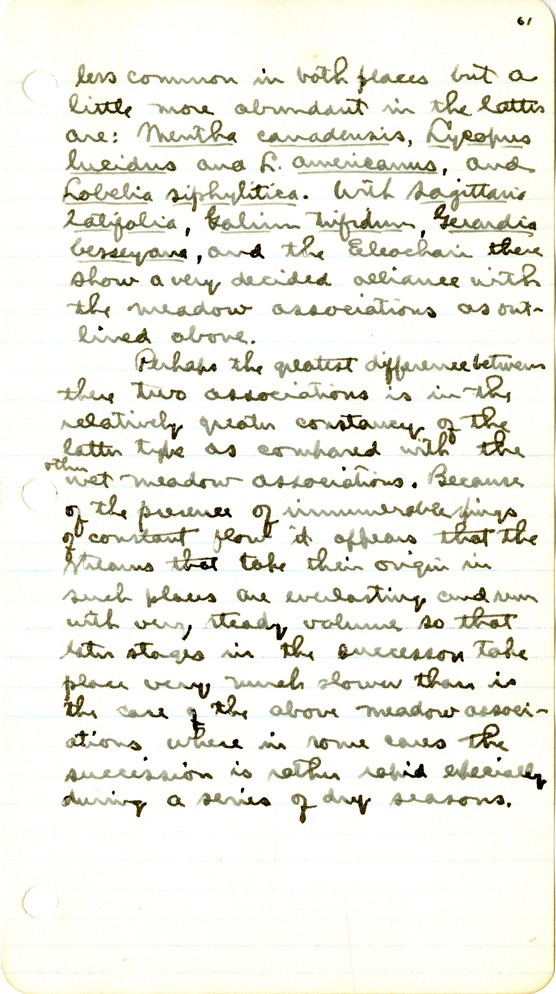 61
less common in both places but a
little more abundant in the latter
are: Mentha canadensis, Lycopus
lucidus and L. americanus, and
Lobelia siphylitica. With Sagittaria
latifolia, Galium trifidum, Gerardia
besseyana, and the Eleocharis these
show a very decided alliance with
the meadow associations as out-
lined above.
Perhaps the greatest difference between
these two associations is in the
relatively greater constancy of the
latter type as compared with the
other
wet meadow associations. Because
of the presence of innumerable springs
of constant flow it appears that the
streams that take their origin in
such places are everlasting and run
with very steady volume so that
later stages in the succession take
place very much slower than is
the case of the above meadow associ-
ations where in some cases the
succession is rather rapid especially
during a series of dry seasons.